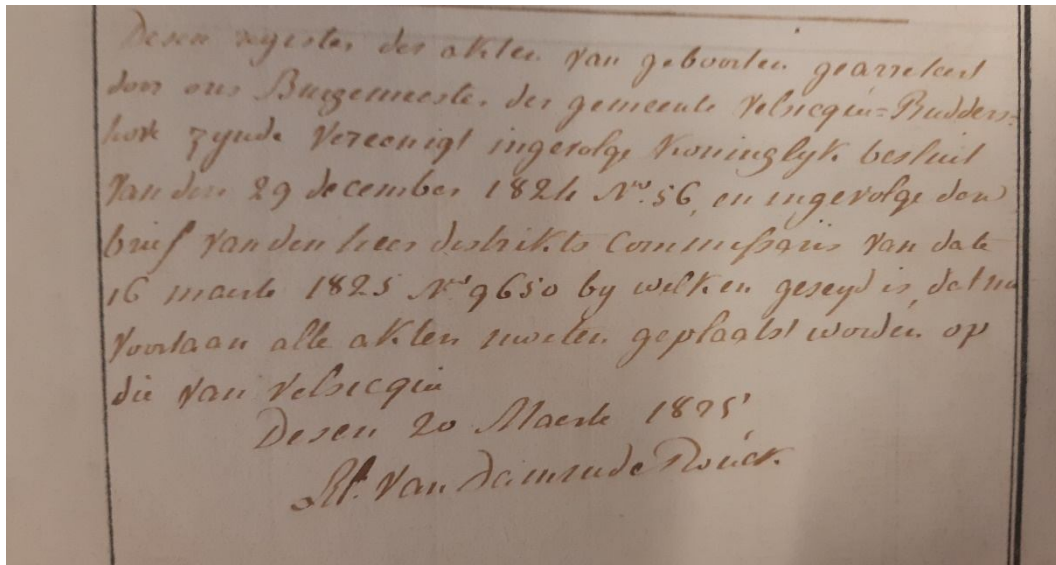 Desen register der akten van geboorten gearreteert
door ons Burgemeester der gemeente Velsicqúe=Rudders=
hove zynde Vereenigt ingevolge Koninglyk besluit
van den 29 december 1824 Nro. 56, en ingevolge den
brief van den heer distrikts Commissaris van date
16 maerte 1825 Nro 9650 by welken geseyd is, dat nu
voortaan alle akten moeten geplaatst worden op
die van Velsicqúe
Desen 20 Maerte 1825
Van